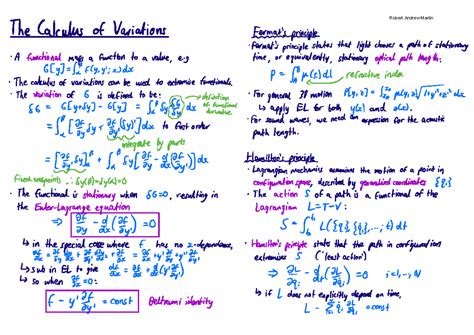 Robert Andrew Martin
The Calculus of Variations
· A functional maps a function to a value, e.g
G[y] = ∫_α^β f(y, y'; x) dx
· The calculus of variations can be used to extremise functionals.
· The variation of G is defined to be:
δG = G[y+δy] - G[y] = ∫_α^β δy δG/δy dx
definition of functional derivative
= ∫_α^β [∂f/∂y δy + ∂f/∂y' δy'] dx to first order
integrate by parts
= [∂f/∂y' δy]_α^β + ∫_α^β [∂f/∂y - d/dx(∂f/∂y')] δy dx
Fixed endpoints ∴ δy(β)=δy(α)=0
· The functional is stationary when δG=0, resulting in
the Euler-Lagrange equation
⇒ ∂f/∂y - d/dx(∂f/∂y') = 0
↳ in the special case where f has no x-dependence,
↳ sub in EL to give
↳ so when ∂f/∂x = 0:
f - y' ∂f/∂y' = const Beltrami identity
Fermat's principle
· Fermat's principle states that light chooses a path of stationary
time, or equivalently, stationary optical path length:
P = ∫_A^B μ(r) dl refractive index
· For general 3D motion P[y,z] = ∫ μ(x,y,z) √(1+y'²+z'²) dx
↳ apply EL for both y(x) and z(x).
· For sound waves, we need an expression for the acoustic
path length.
Hamilton's principle
· Lagrangian mechanics examines the motion of a point in
configuration space, described by generalised coordinates {q_i}
· The action S of a path is a functional of the
Lagrangian L = T - V:
S = ∫ L({q_i}, {q̇_i}, ...; t) dt
· Hamilton's principle states that the path in configuration
extremises S ('least action')
⇒ ∂L/∂q_i - d/dt(∂L/∂q̇_i) = 0 i=1,..,N
↳ if L does not explicitly depend on time,
L - Σ q̇_i ∂L/∂q̇_i = const